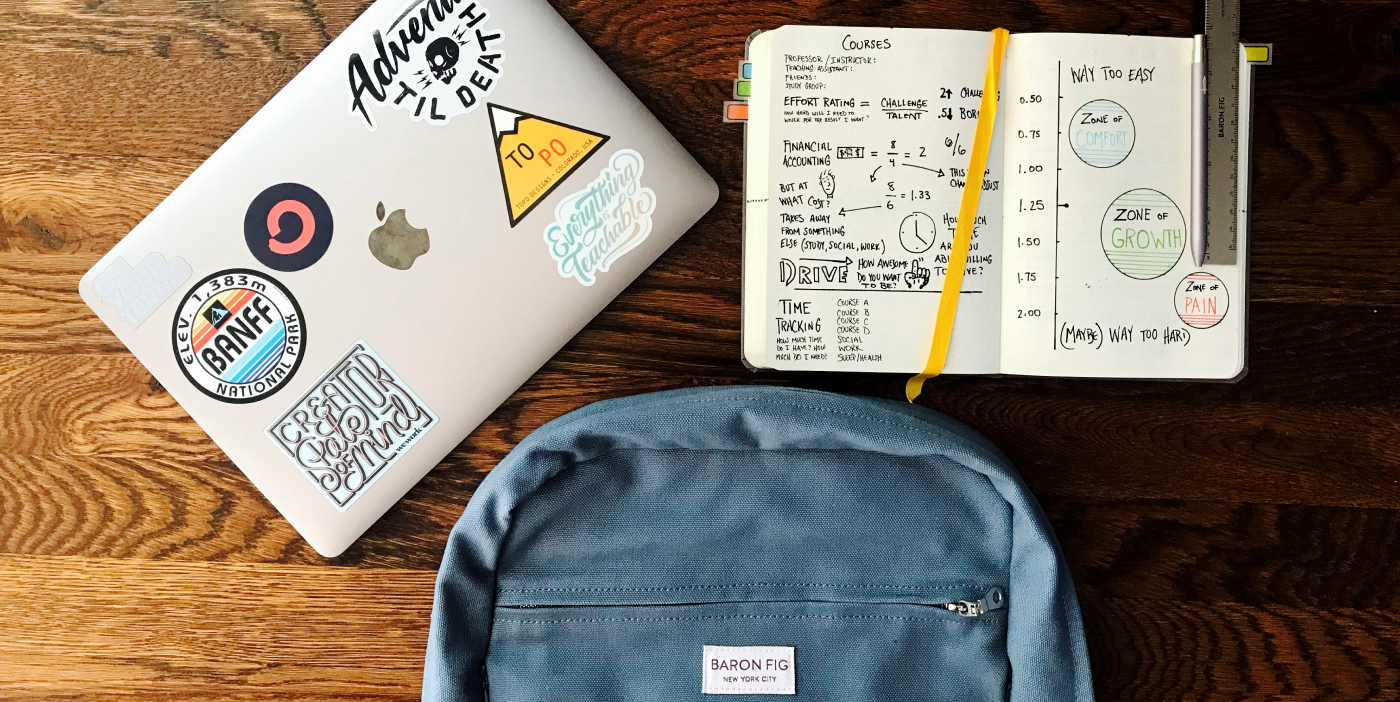 Adventu
TIL DEATH
TO PO
TOPO DESIGNS • COLORADO, USA
Everything
is
Teachable
ELEV. 1,383m
BANFF
NATIONAL PARK
CREATOR
State
OF Mind
wework
COURSES
PROFESSOR / INSTRUCTOR:
TEACHING ASSISTANT:
FRIENDS:
STUDY GROUP:
EFFORT RATING = CHALLENGE
TALENT
HOW HARD WILL I NEED TO
WORK FOR THE RESULT I WANT?
2↑ CHALLE
.5↓ BOR
FINANCIAL
ACCOUNTING
$$$ = 8
4
= 2
6/6
BUT AT
WHAT COST?
8
6
= 1.33
THIS
CHAN JUST
TAKES AWAY
FROM SOMETHING
ELSE (STUDY, SOCIAL, WORK)
HOW MUCH
ARE YOU
WILLING
TO GIVE?
DRIVE
HOW AWESOME
DO YOU WANT
TO BE?
TIME
TRACKING
HOW MUCH TIME
DO I HAVE? HOW
MUCH DO I NEED?
COURSE A
COURSE B
COURSE C
COURSE D
SOCIAL
WORK
SLEEP/HEALTH
WAY TOO EASY
0.50
0.75
1.00
1.25
1.50
1.75
2.00
ZONE OF
COMFORT
ZONE OF
GROWTH
ZONE OF
PAIN
(MAYBE) WAY TOO HARD
BARON FIG
BARON FIG
NEW YORK CITY